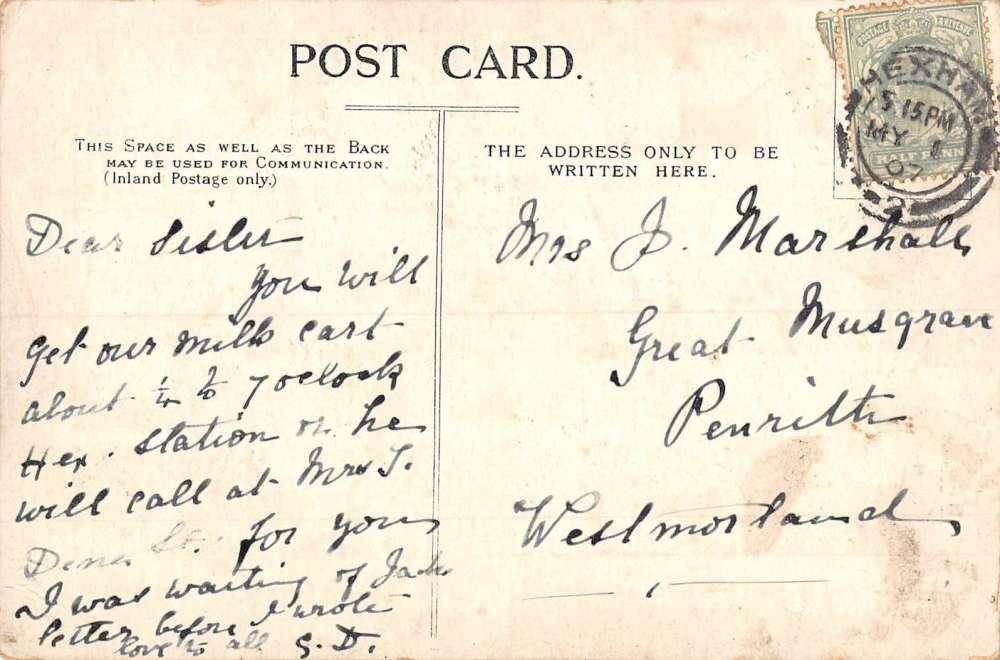 POST CARD.
THIS SPACE AS WELL AS THE BACK
MAY BE USED FOR COMMUNICATION.
(Inland Postage only.)
THE ADDRESS ONLY TO BE
WRITTEN HERE.
POSTAGE & REVENUE
HALF PENNY
HEXHAM
5 15 PM
MY 1
07
2
Dear Sister
You will
get our milk cart
about ¼ to 7 oclock
Hex. station or he
will call at Mrs T.
St. for you
I was waiting of Jack
letter before I wrote
love to all S.D.
Mrs J. Marshall
Great Musgrave
Penrith
Westmorland